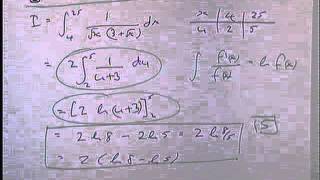 I = ∫₄²⁵ 1/(√x (3+√x)) dx
x | 4 | 25
u | 2 | 5
= 2∫₂⁵ 1/(u+3) du
∫ f'(x)/f(x) = ln f(x)
= [2 ln(u+3)]₂⁵
= 2 ln 8 - 2 ln 5 = 2 ln 8/5
5
= 2 (ln 8 - ln 5)